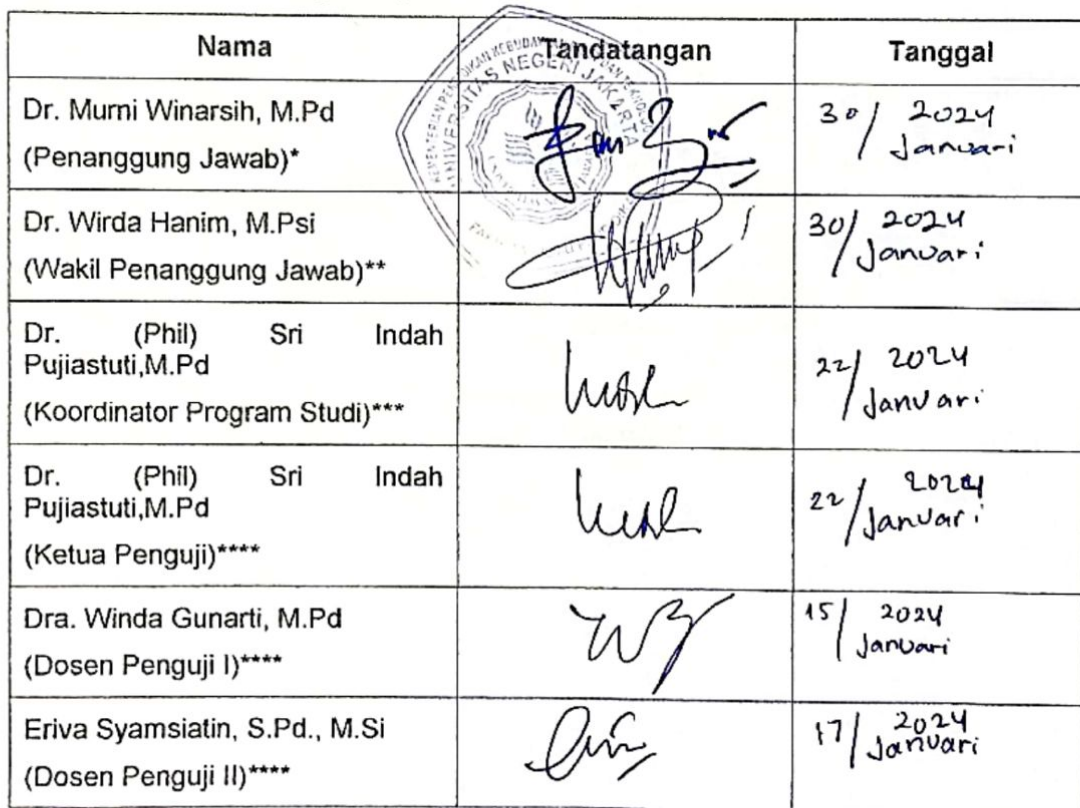 Nama Tandatangan Tanggal
Dr. Murni Winarsih, M.Pd
(Penanggung Jawab)*
30/ 2024
Januari
Dr. Wirda Hanim, M.Psi
(Wakil Penanggung Jawab)**
30/ 2024
Januari
Dr. (Phil) Sri Indah
Pujiastuti,M.Pd
(Koordinator Program Studi)***
22/ 2024
Januari
Dr. (Phil) Sri Indah
Pujiastuti,M.Pd
(Ketua Penguji)****
22/ 2024
Januari
Dra. Winda Gunarti, M.Pd
(Dosen Penguji I)****
15/ 2024
Januari
Eriva Syamsiatin, S.Pd., M.Si
(Dosen Penguji II)****
17/ 2024
Januari
UNIVERSITAS NEGERI JAKARTA